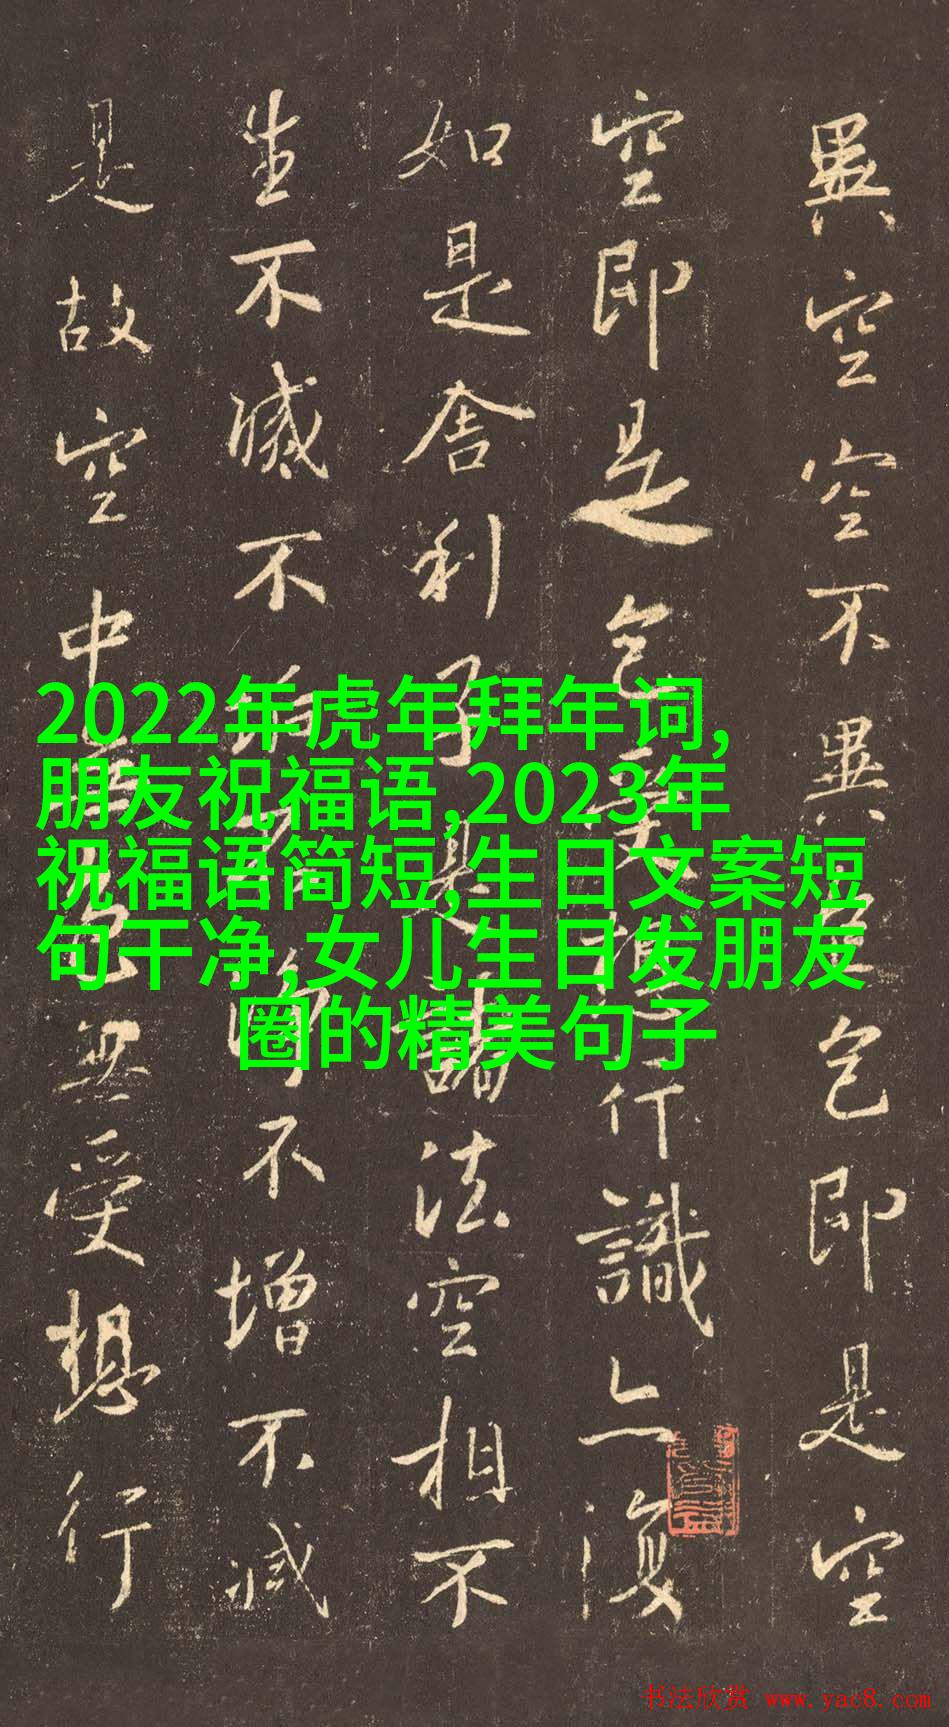 異空空不異色色即是空
空即是色受想行識亦復
如是舍利子是諸法空相不
生不滅不垢不淨不增不減
是故空中無色無受想行
2022年虎年拜年词,
朋友祝福语,2023年
祝福语简短,生日文案短
句干净,女儿生日发朋友
圈的精美句子
书法欣赏 www.yac8.com